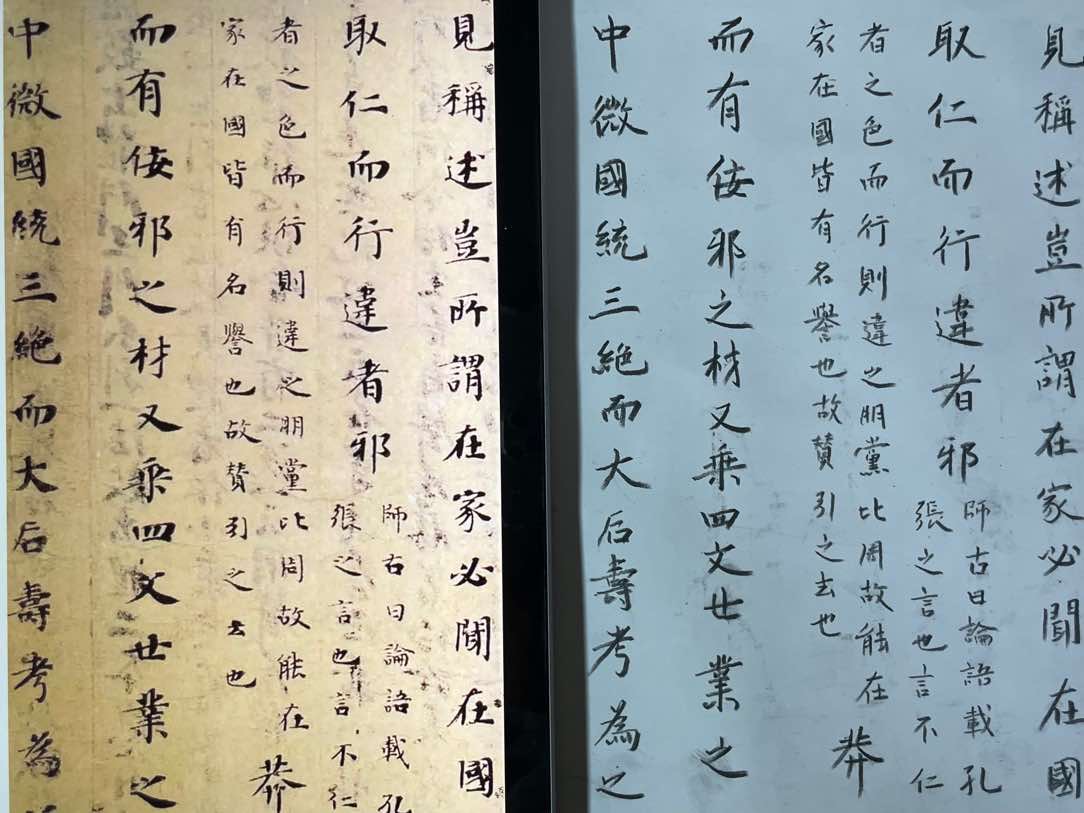 見稱述豈所謂在家必聞在國
取仁而行違者邪
師古曰論語載孔
張之言也言不仁
者之色而行則違之朋黨比周故能在
家在國皆有名譽也故賛引之去也
莽
而有佞邪之材又乗四父世業之
中微國統三絶而大后壽考為
見稱述豈所謂在家必聞在國
取仁而行違者邪
師古曰論語載孔
張之言也言不仁
者之色而行則違之朋黨比周故能在
家在國皆有名譽也故賛引之去也
莽
而有佞邪之材又乗四文世業之
中微國統三絶而大后壽考為之